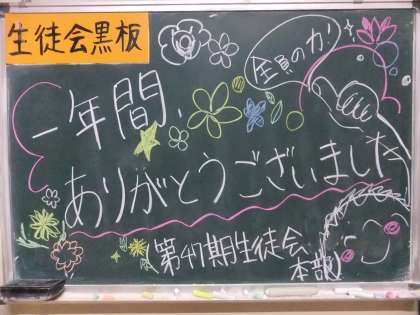 生徒会黒板
全員の力!
一年間、
ありがとうございました
(第47期生徒会、
本部)